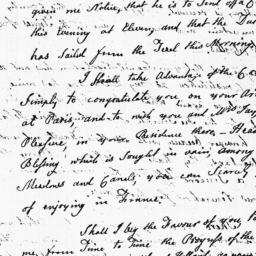 given me Notice, that he is to Send off a C
this Evening at Eleven, and that the Du
has Sailed from the Texel this Morning
I Shall take Advantage of the C
Simply to congratulate you on your Arr
at Paris and to wish you and Mrs Jay
Pleasure, in your Residence there. Hea
Blessing which is Sought in vain, among
Meadows and Canals, you can Scarc
of enjoying in France.
Shall I beg the Favour of you, to
me, from Time to Time the Progress of the